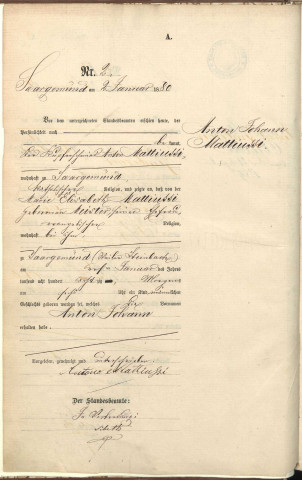 A.
Nr. 2.
Saargemünd am 2 Januar 1880
Vor dem unterzeichneten Standesbeamten erschien heute, der
Persönlichkeit nach
be kannt,
der Anton Mattiussi
wohnhaft zu Saargemünd
katholischer Religion, und zeigte an, daß von der
Maria Elisabeth Mattiussi
geborenen seiner Ehefrau
evangelischer Religion,
wohnhaft bei ihm
zu Saargemünd (
am Januar des Jahres
tausend acht hundert achtzig
um Uhr ein Kind männlichen
Geschlechts geboren worden sei, welches die Vornamen
Anton Johann
erhalten habe.
Vorgelesen, genehmigt und unterschrieben
Antonio Mattiussi
Der Standesbeamte:
In Vertretung:
Anton Johann
Mattiussi